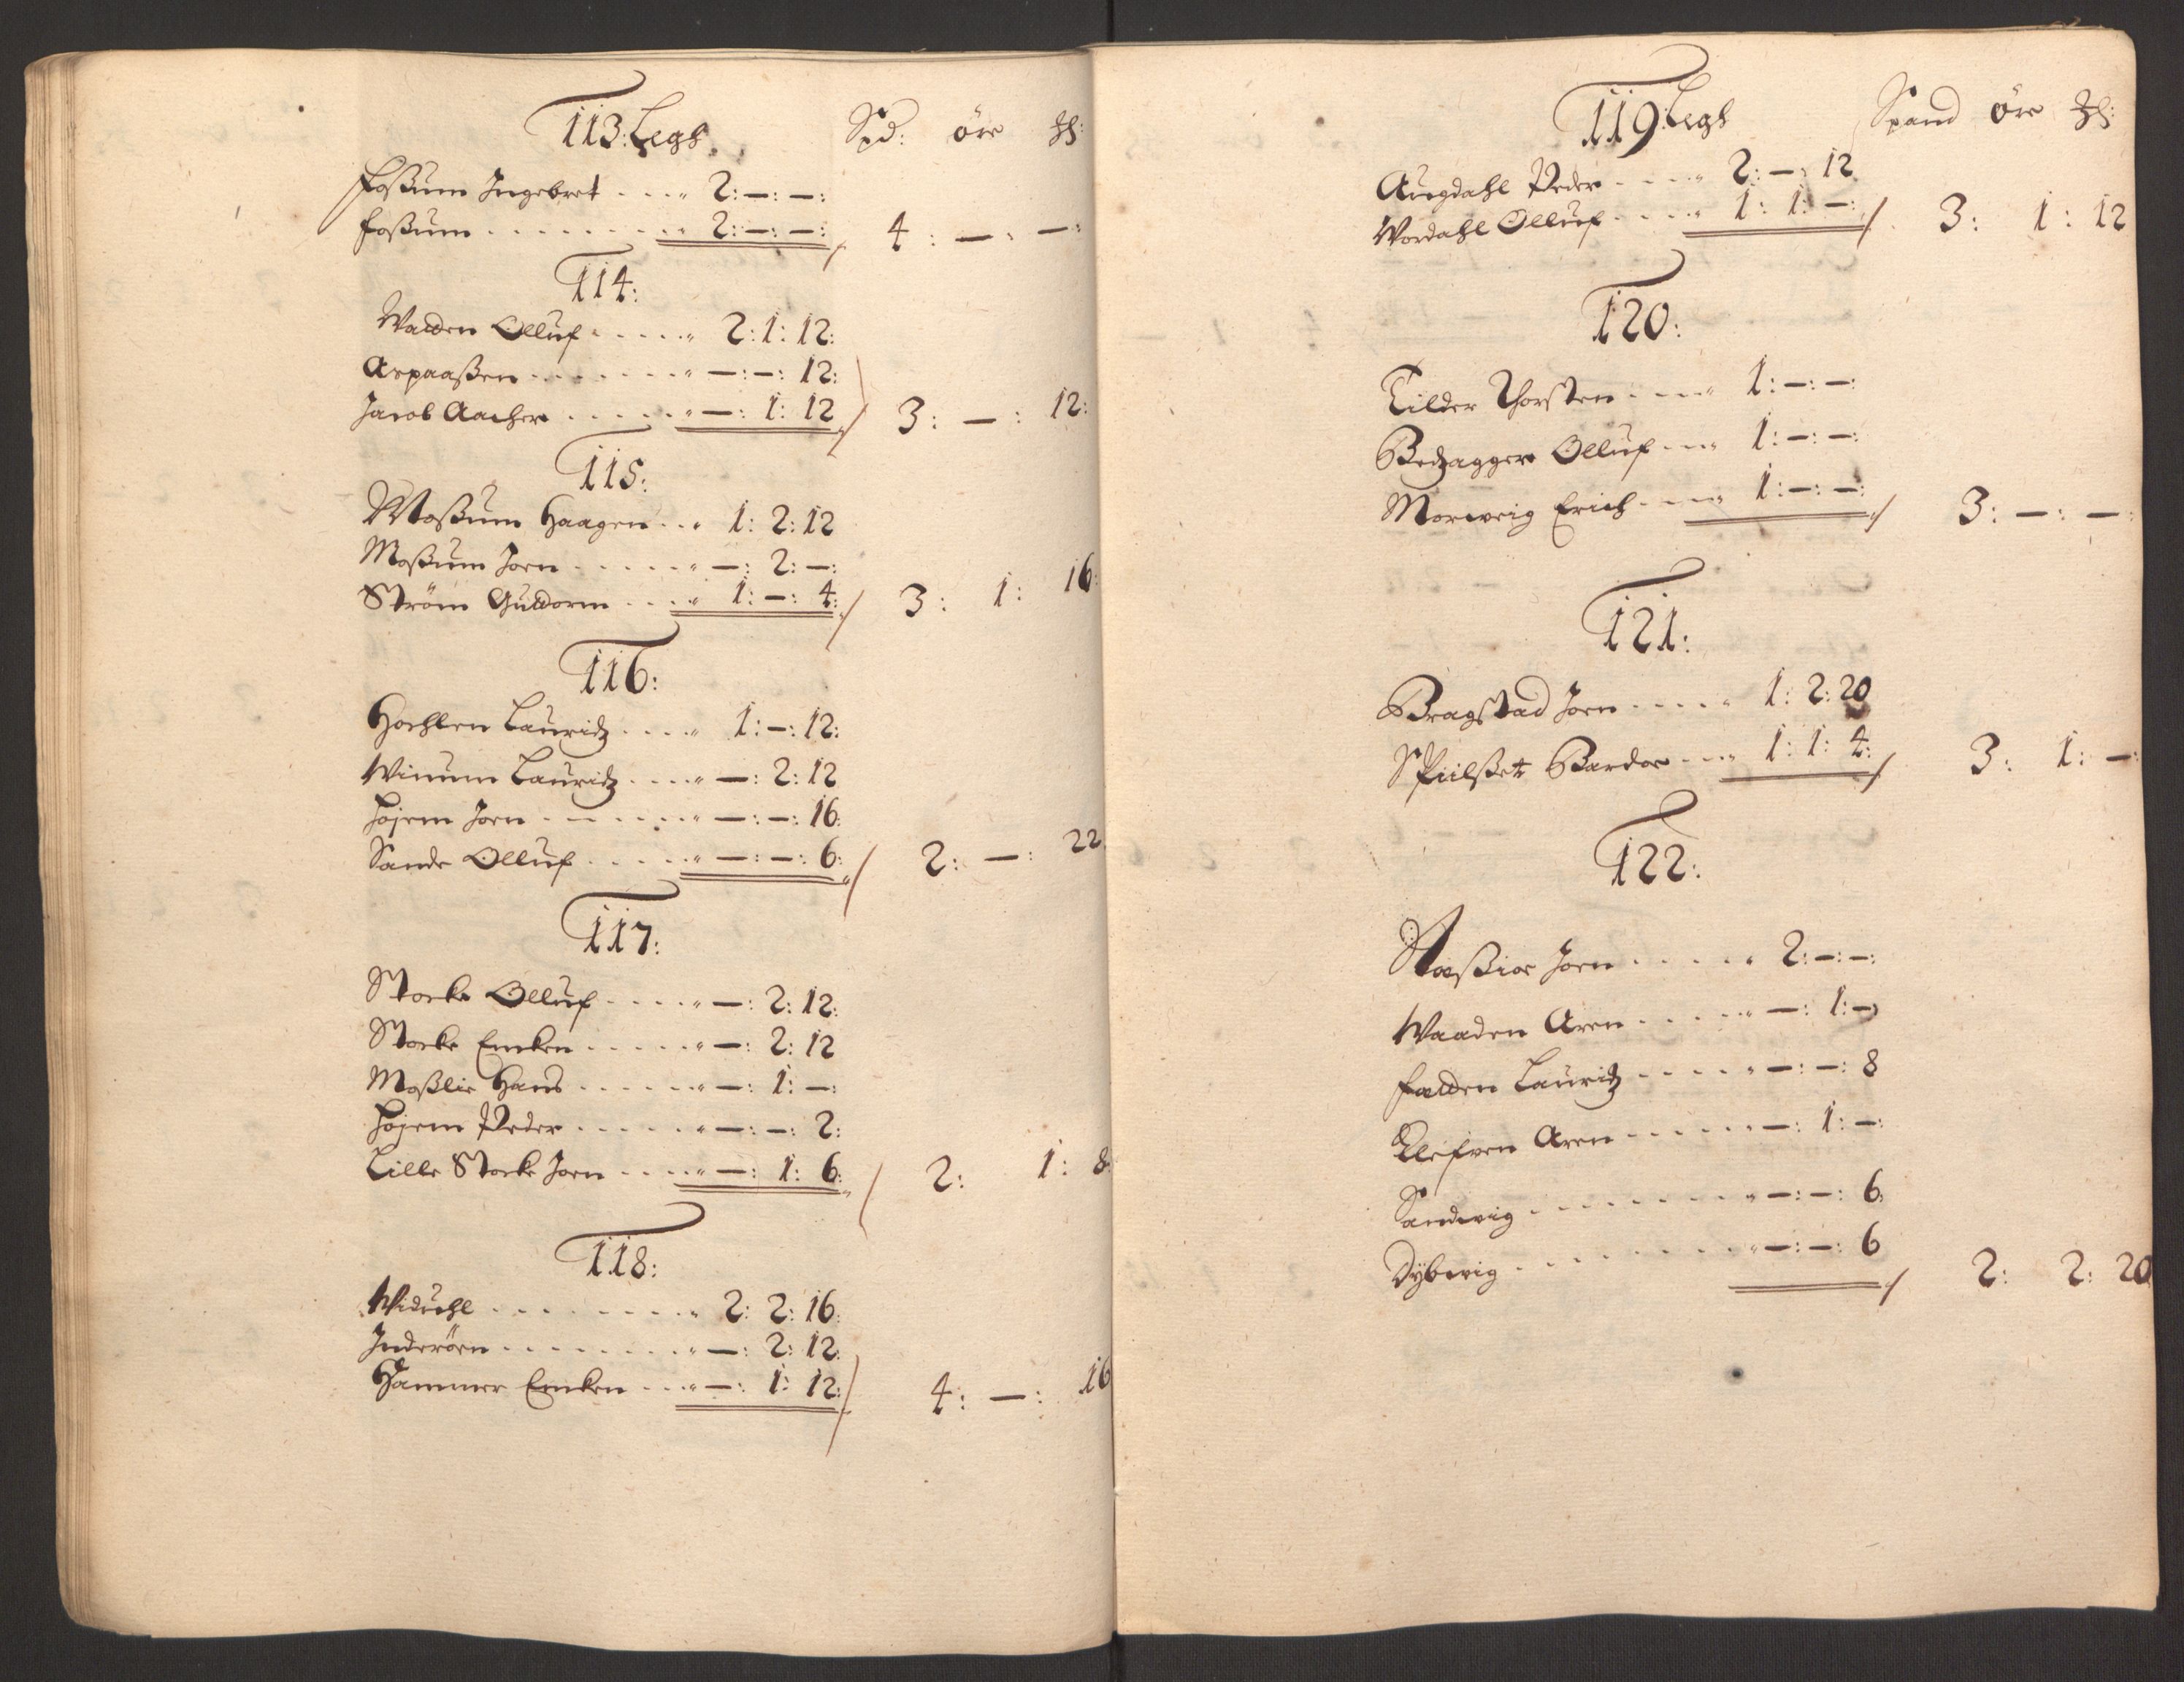 113: Legh Spd: öre ꝫß:
Foßum Ingebret . . . . 2:—:—:
Foßum . . . . . . . . 2:—:—: / 4:—:—:
114:
Walden Olluf . . . . . 2:1:12:
Aspaaßen . . . . . . . —:—:12:
Jacob Aacher . . . . . —:1:12 / 3:—:12:
115:
Moßum Haagen . . . 1:2:12
Moßum Joen . . . . . —:2:—:
Ström Guldorm . . . . 1:—:4: / 3:1:16:
116:
Hoehlen Lauridz . . . . 1:—:12:
Winum Lauridz . . . . —:2:12
Höjem Joen . . . . . . —:—:16:
Sande Olluf . . . . . —:—:6: / 2:—:22
117:
Stocke Olluf . . . . . —:2:12:
Stocke Encken . . . . . —:2:12
Moßlie Hans . . . . . . —:1:—:
Höjem Peder . . . . . . —:—:2:
Lille Stocke Joen . . . . —:1:6: / 2:1:8:
118:
Widuehl . . . . . . . . 2:2:16:
Inderöen . . . . . . . . —:2:12:
Hammer Encken . . . —:1:12: / 4:—:16
119: Legh Spand öre ꝫß:
Augdahl Peder . . . . 2:—:12
Wordahl Olluf . . . . 1:1:—: / 3:1:12
120:
Tilder Thorsten . . . . 1:—:—:
Bedzagger Olluf . . . 1:—:—:
Morweig Erich . . . . 1:—:—: / 3:—:—:
121:
Bragstad Joen . . . . . 1:2:20
Spiilßet Bardor . . . 1:1:4: / 3:1:—:
122:
Joen . . . . . 2:—:—:
Waaden Aren . . . . . —:1:—
Falden Lauridz . . . . . —:—:8
Klefven Aren . . . . . . —:1:—:
Sandwig . . . . . . . . —:—:6:
Dybwig . . . . . . . . —:—:6 / 2:2:20